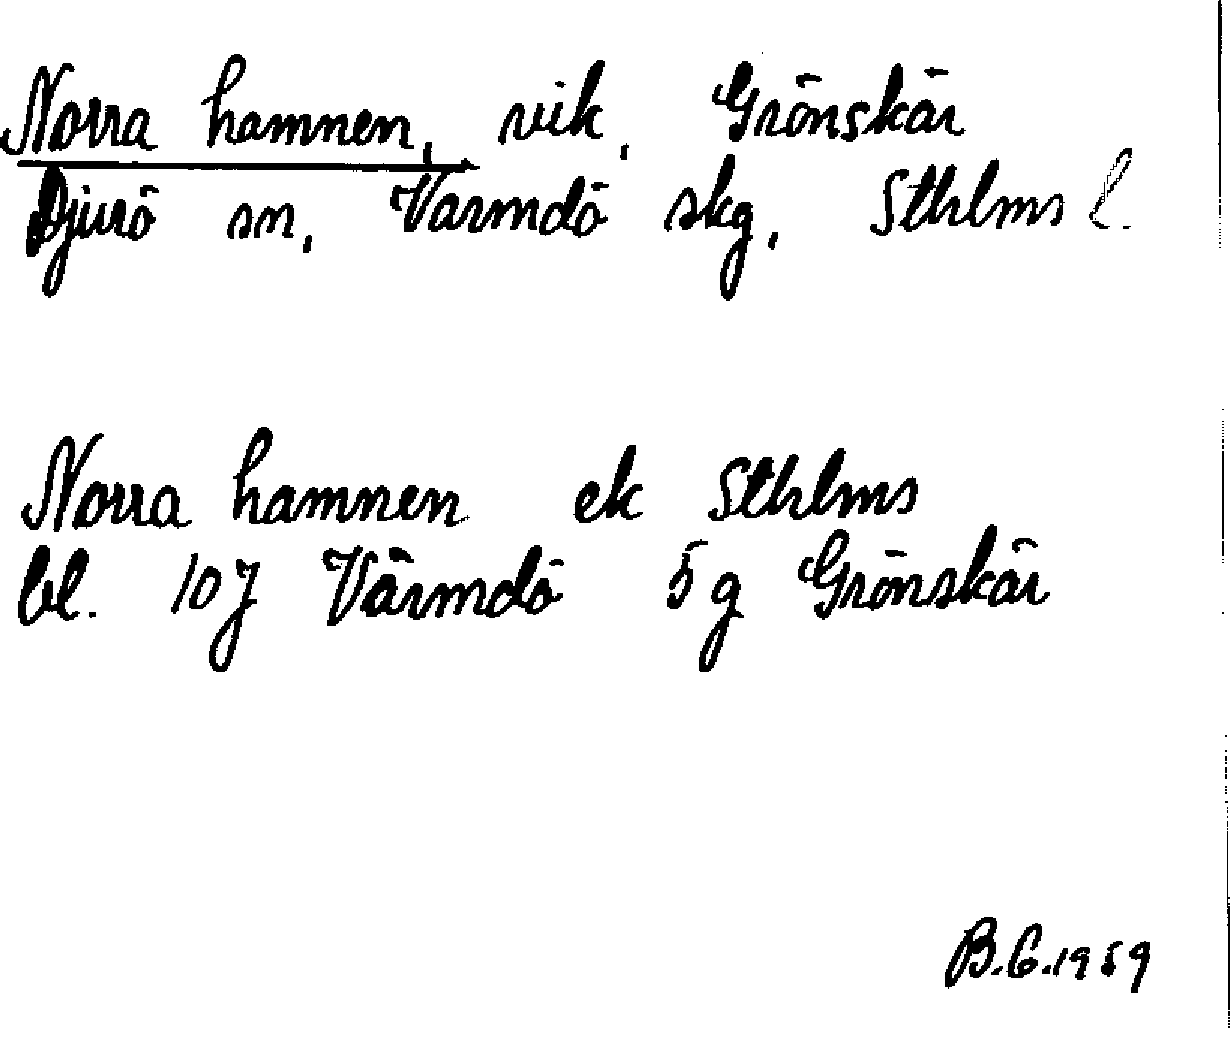 Norra hamnen, vik, Grönskär
Djurö sn, Värmdö skg, Sthlms l.
Norra hamnen ek Sthlms
bl. 10J Värmdö 5g Grönskär
B.G.1959